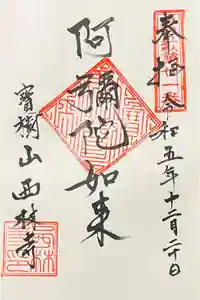 奉拝 令和五年十二月二十日
阿彌陀如来
寶樹山西林寺